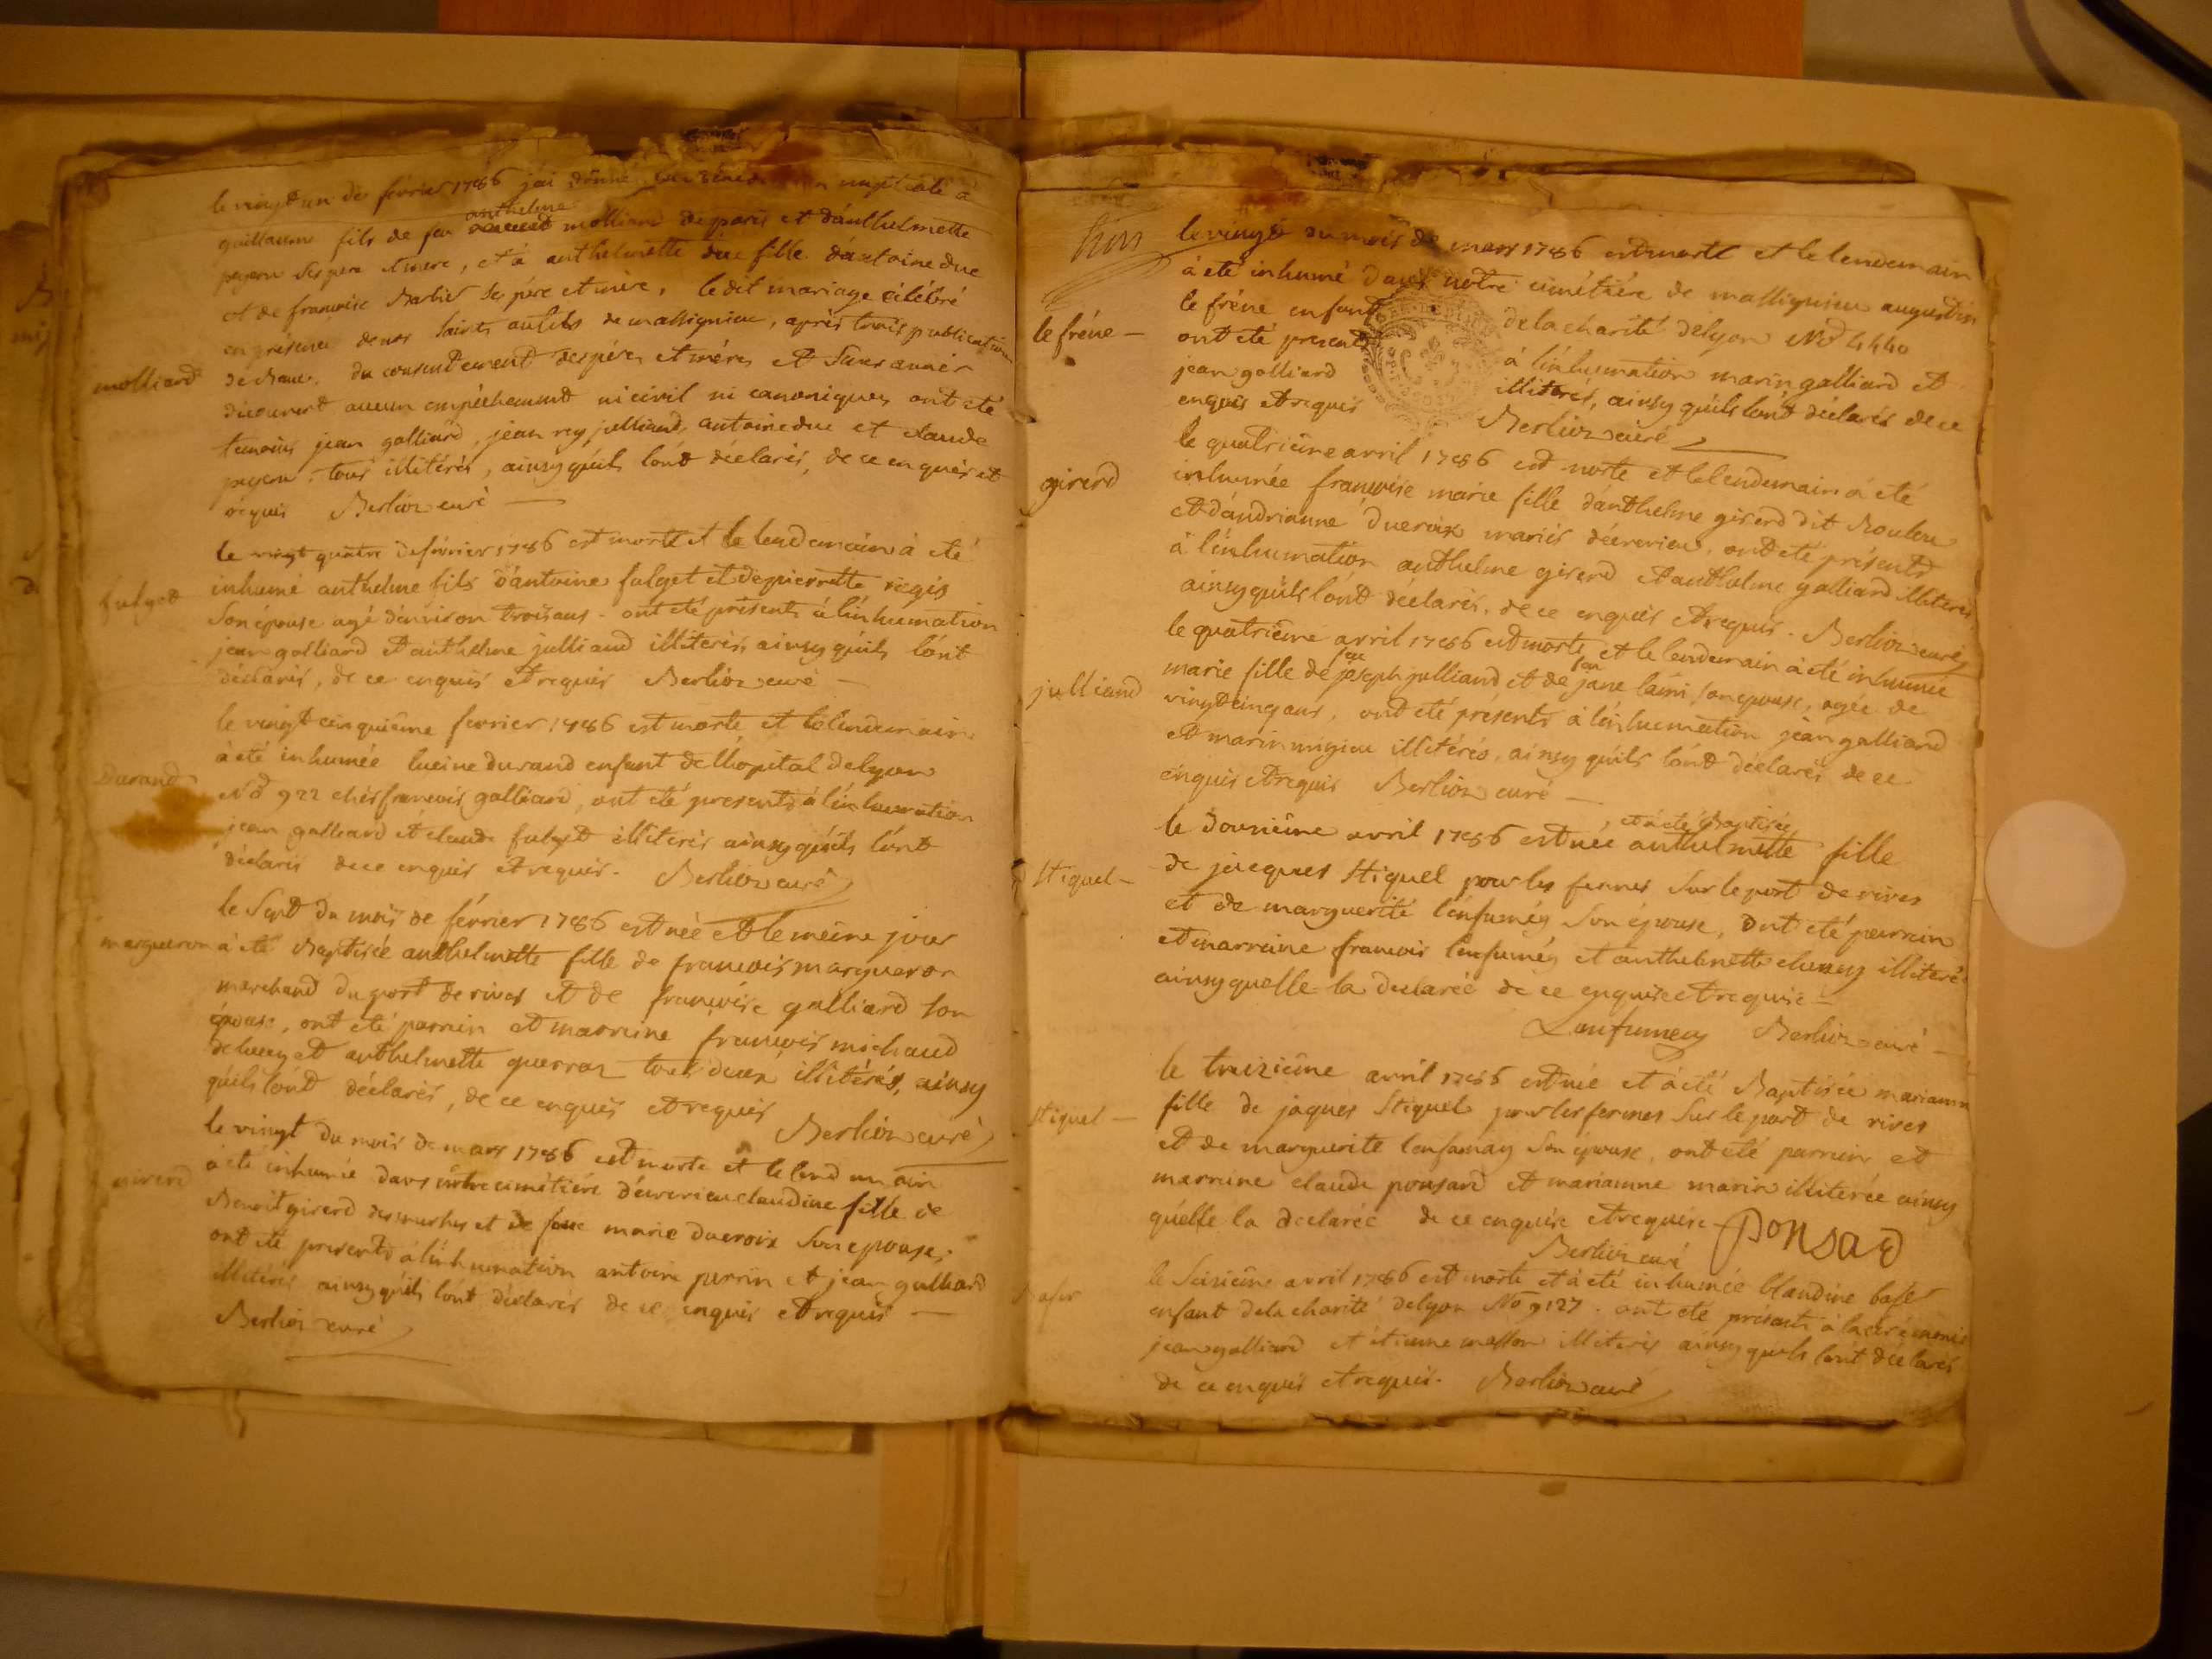 le vingt un de fevrier 1786 j'ai donné nuptiale à
guillaume fils de feu anthelme molliard de paris et d'anthelmette
peyeru ses pere et mere, et à anthelmette duc fille d'antoine duc
et de francoise Barbier ses pére et mére, le dit mariage célébré
en présence de nos saints autels de massignieu, aprés trois publications
molliard
de Bans, du consentement des péres et méres et sans avoir
découvert aucun empéchement ni civil ni canoniques ont eté
temoins jean galliard, jean rey julliand, antoine duc et claude
peyeru tous illitérés, ainsy qu'ils l'ont déclarés, de ce enquis et
réquis Berlioz curé
le vingt quatre de février 1786 est morte et le lendemain à eté
fulget
inhumé anthelme fils d'antoine fulget et de pierrette regis
son épouse agé d'environ trois ans. ont eté présents à l'inhumation
jean galliard et anthelme julliand illiterés, ainsy qu'ils l'ont
déclarés, de ce enquis et requis Berlioz curé
le vingt cinquiéme fevrier 1786 est morte et le lendemain
à eté inhumée lucine durand enfant de l'hopital de lyon
Durand
No 922 chés francois galliard, ont eté presents à l'inhumation
jean galliard et claude fulget illiterés ainsy qu'ils l'ont
déclarés de ce enquis et requis. Berlioz curé
le sept du mois de février 1786 est née et le méme jour
margueron
à eté Baptisée anthelmette fille de francois margueron
marchand du port de rives et de francoise galliard son
épouse, ont eté parrin et marreine francois michaud
de lucey et anthelmette querraz tous deux illitérés, ainsy
qu'ils l'ont déclarés, de ce enquis et requis Berlioz curé
le vingt du mois de mars 1786 est morte et le lendemain
girerd
à eté inhumée dans notre cimetiére d'écrerieu claudine fille de
Benoit girerd et de feue marie ducroix son epouse,
ont eté presents à l'inhumation antoine perrin et jean galliard
illitérés ainsy qu'ils l'ont déclarés de ce enquis et requis
Berlioz curé
le vingt du mois de mars 1786 est morte et le lendemain
à eté inhumé dans notre cimétiére de massignieu augustin
le fréne
le fréne enfant de la charité de lyon No 4440
ont eté presents à l'inhumation marin galliard et
jean galliard illiterés, ainsy qu'ils l'ont déclarés de ce
enquis et requis Berlioz curé
le quatriéme avril 1786 est morte et le lendemain à eté
girerd
inhumée francoise marie fille d'anthelme girerd dit Roulou
et d'andrianne ducroix mariés d'écrerieu, ont eté présents
à l'inhumation anthelme girerd et anthelme galliard illiterés
ainsy qu'ils l'ont déclarés, de ce enquis et requis. Berlioz curé
le quatriéme avril 1786 est morte, et le lendemain à eté inhumée
julliand
marie fille de feu joseph julliand et de feu jane laini son epouse, agée de
vingt cinq ans, ont eté presents à l'inhumation jean galliard
et marin migieu illitérés, ainsy qu'ils l'ont déclarés de ce
enquis et requis Berlioz curé
le douziéme avril 1786 est née et à eté Baptisée anthelmette fille
Stiquel
de jacques Stiquel pour les fermes sur le port de rives
et de marguerite l'enfumey son épouse, ont eté parrin
et marreine francois l'enfumey et anthelmette illiteré
ainsy quelle la declarée de ce enquise et requise
Lenfumey Berlioz curé
le treiziéme avril 1786 est née et à eté Baptisée marianne
Stiquel
fille de jaques Stiquel pour les fermes sur le port de rives
et de marguerite l'enfumay son épouse, ont eté parrein et
marreine claude ponsard et marianne marin illiterée ainsy
qu'elle la declarée de ce enquise et requise ponsard
Berlioz curé
le seiziéme avril 1786 est morte et à eté inhumée blandine baser
Baser
enfant de la charité de lyon No 9127. ont eté présents à la cérémonie
jean galliard et etienne masson illiterés ainsy quils l'ont déclarés
de ce enquis et requis. Berlioz curé